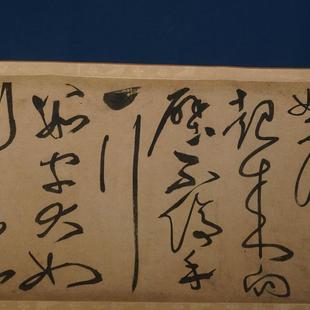 起來向
壁不停手
一行
數字大如